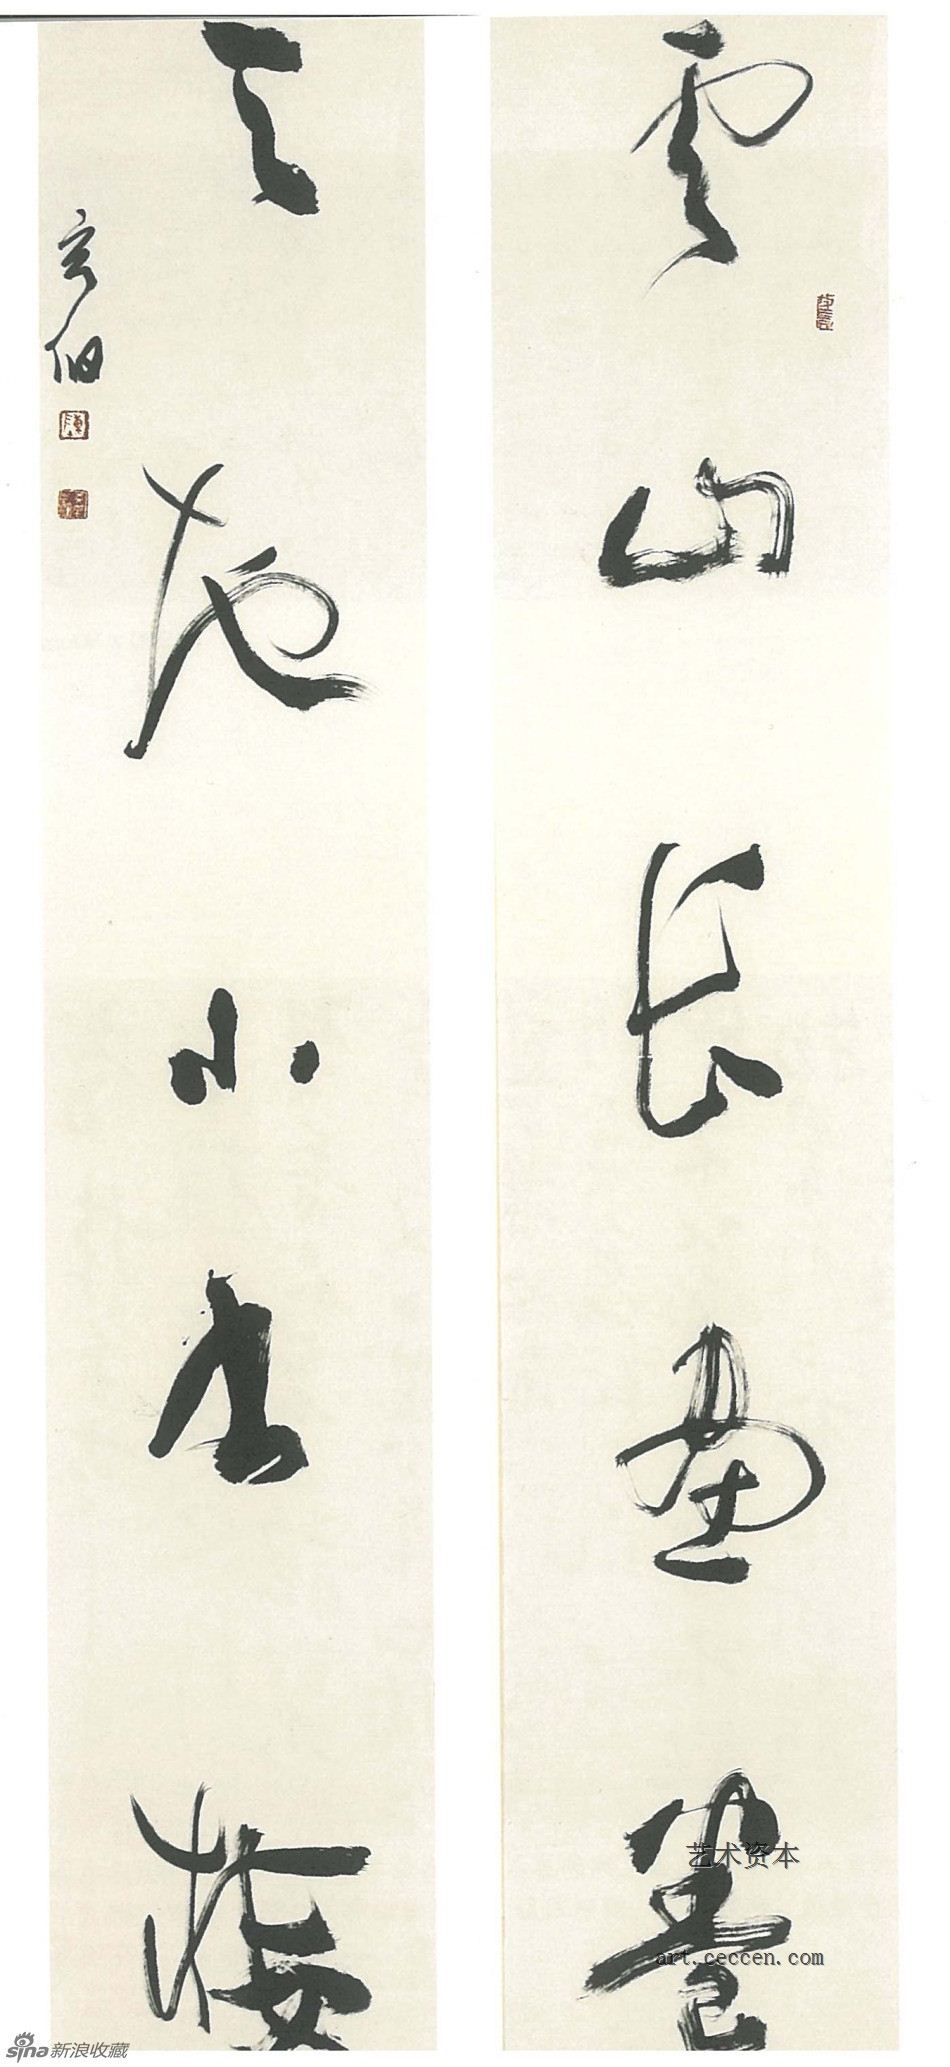 雲山長畫卷
天地小書樓
玄伯
艺术资本
art.ceccen.com
sina新浪收藏